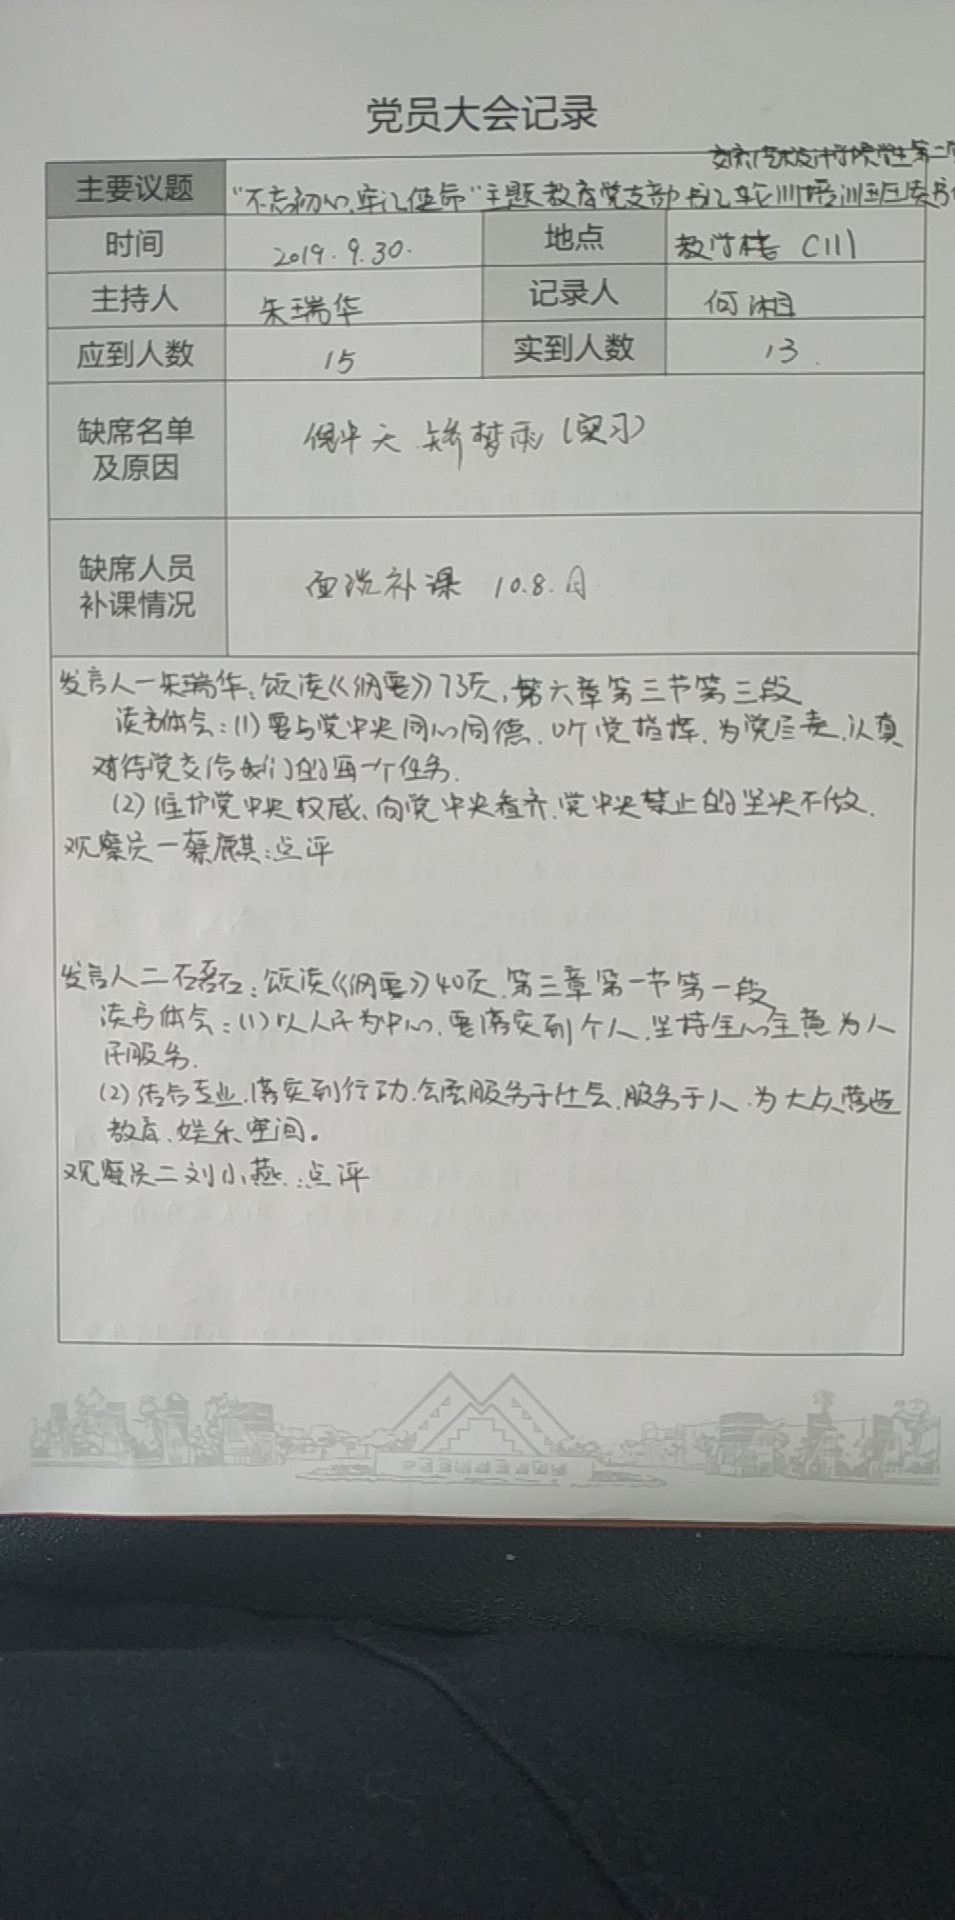 党员大会记录
艺术设计学院学生第二
主要议题 "不忘初心、牢记使命"主题教育党支部书记轮训培训班读书
时间 2019.9.30. 地点 教学楼 C111
主持人 朱瑞华 记录人 何湘
应到人数 15 实到人数 13.
缺席名单
及原因
天 矫梦雨(实习)
缺席人员
补课情况
面谈补课 10.8.日
发言人一朱瑞华:领读《纲要》73页,第六章第三节第三段
读书体会:(1)要与党中央同心同德、听党指挥、为党尽责、认真
对待党交给我们的每一个任务.
(2)维护党中央权威、向党中央看齐、党中央禁止的坚决不做.
观察员一蔡麒:点评
发言人二石磊:领读《纲要》40页.第三章第一节第一段
读书体会:(1)以人民为中心,要落实到个人.坚持全心全意为人
民服务.
(2)结合专业,落实到行动.会展服务于社会、服务于人.为大众营造
教育、娱乐空间。
观察员二刘小燕:点评